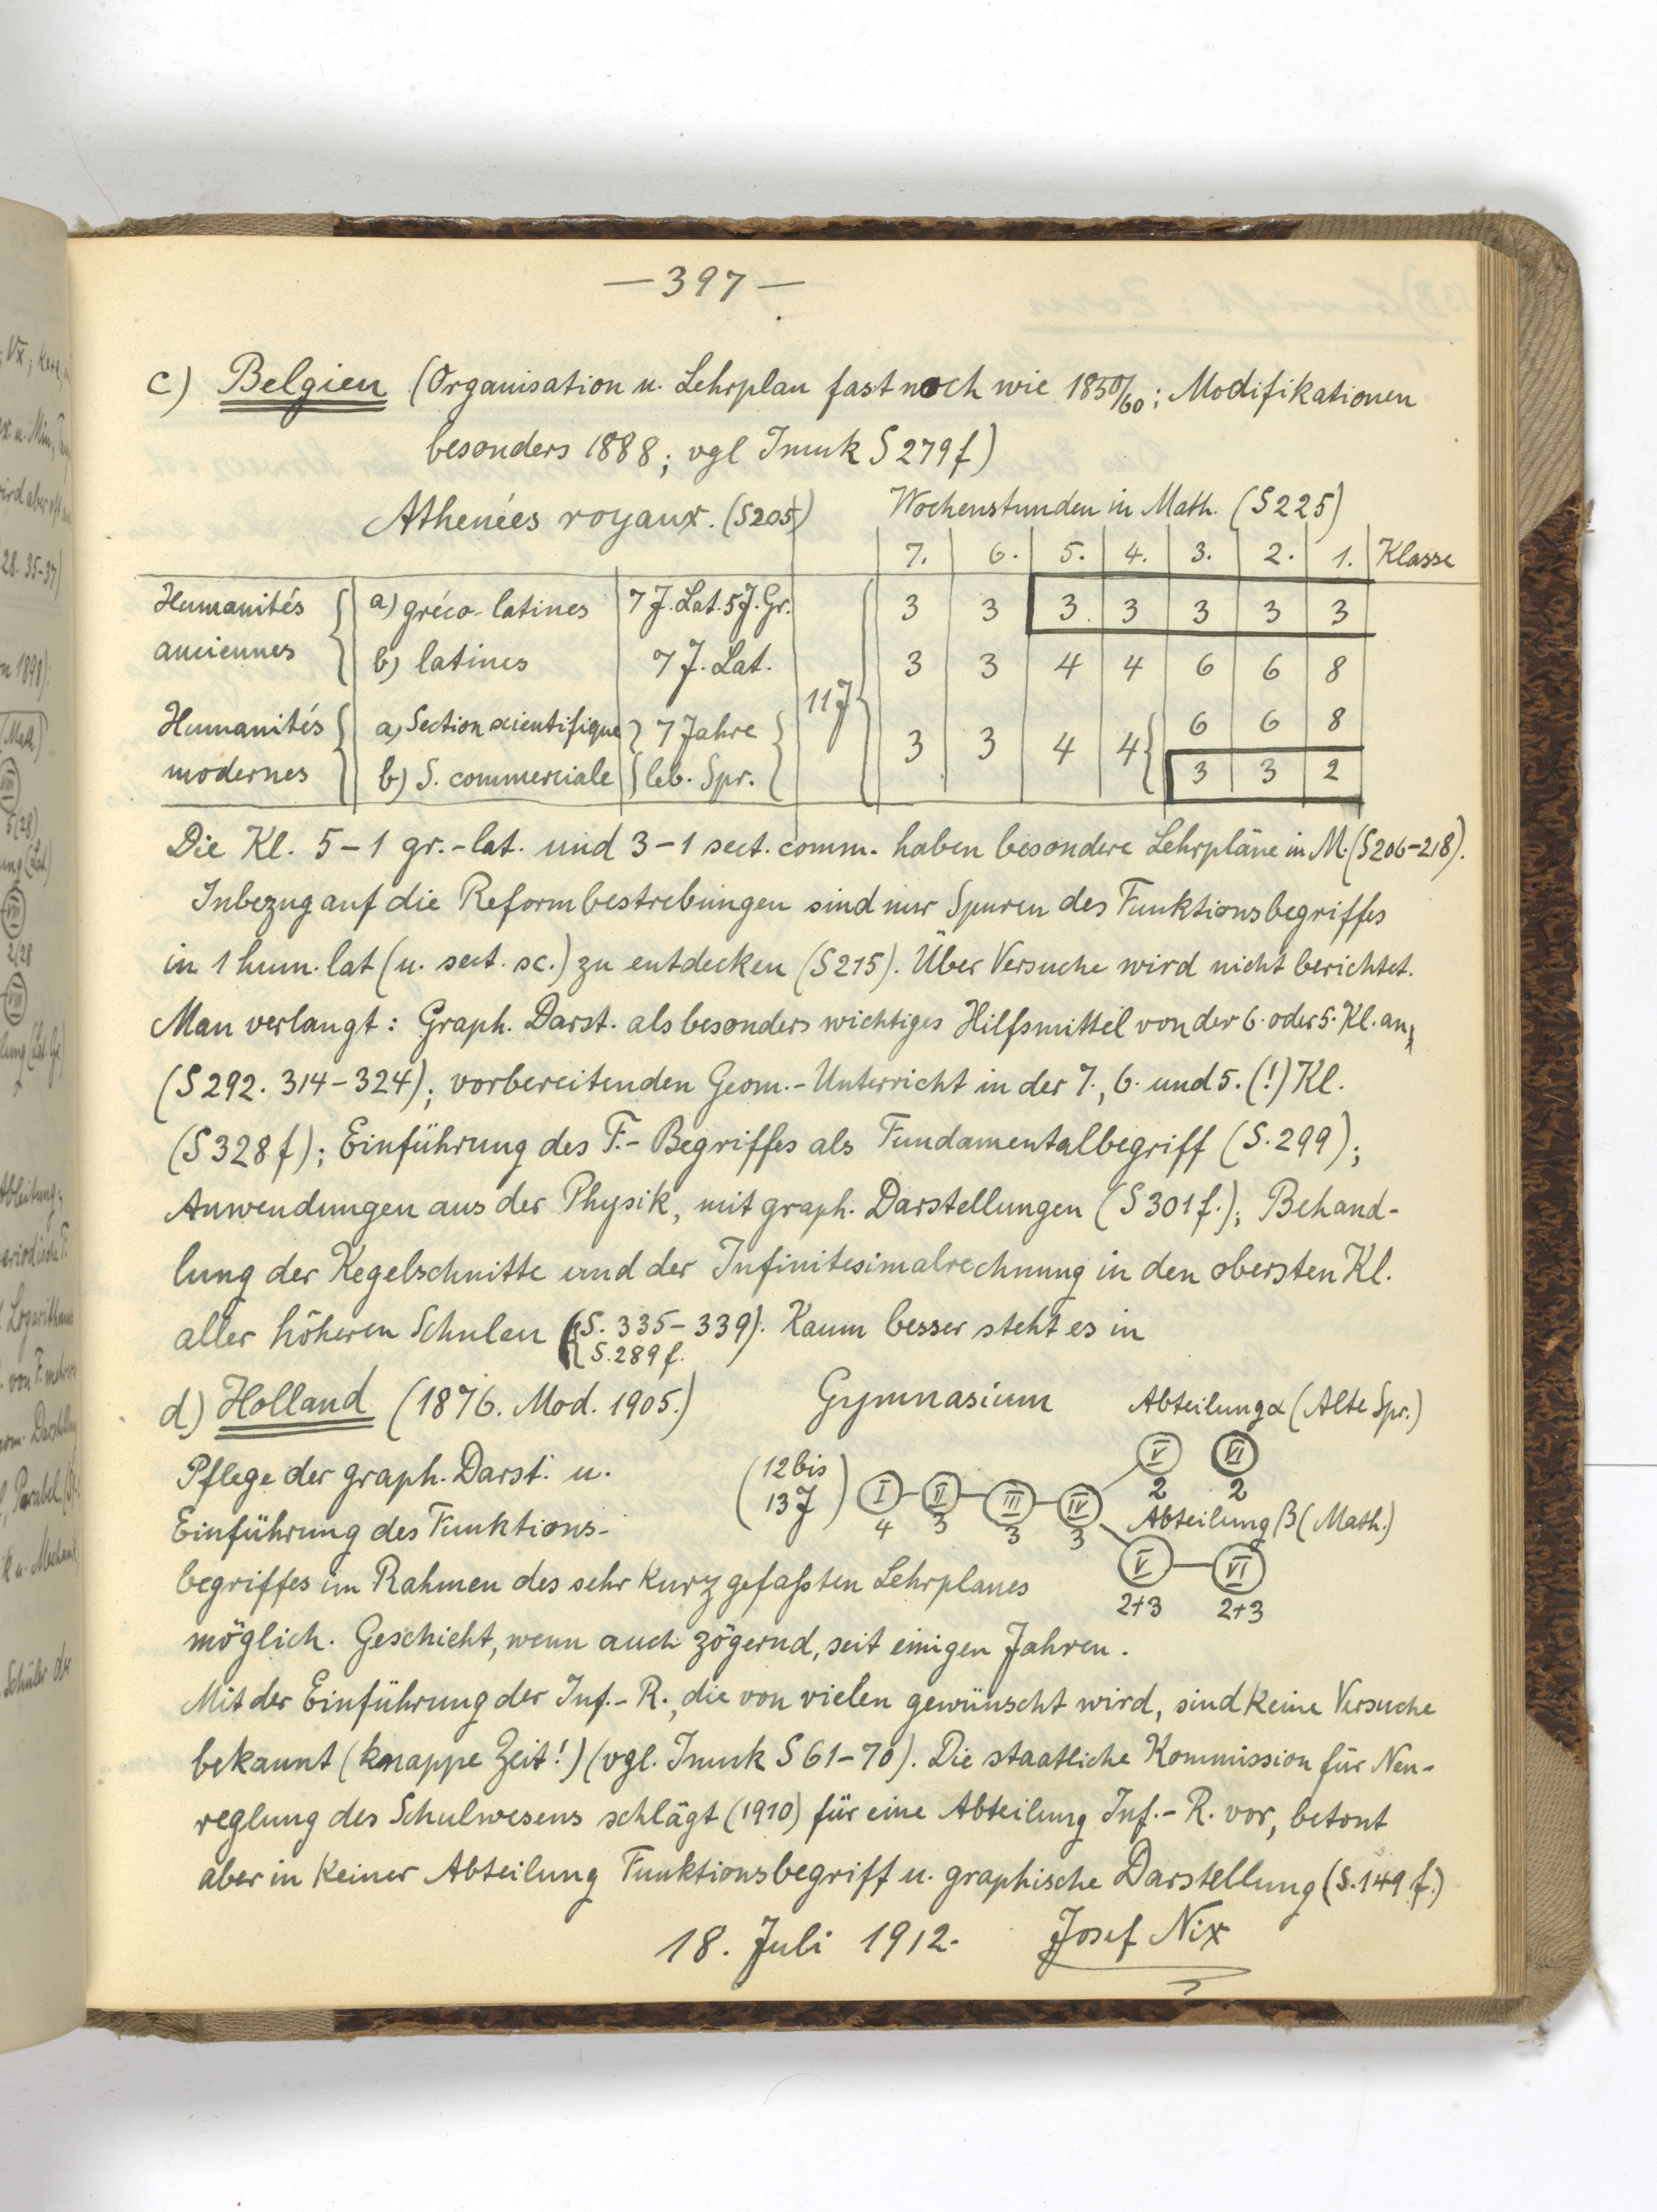 —397—
c) Belgien (Organisation u. Lehrplan fast noch wie 1850/60; Modifikationen
besonders 1888; vgl Imuk S 279f)
Athenées royaux. (S205) Wochenstunden in Math. (S225)
7. 6. 5. 4. 3. 2. 1. Klasse
Humanités a) gréco-latines 7 J. Lat. 5 J. Gr. 3 3 3 3 3 3 3
anciennes b) latines 7 J. Lat. 3 3 4 4 6 6 8
11 J
Humanités a) Section scientifique 7 Jahre 3 3 4 4 6 6 8
modernes b) S. commerciale leb. Spr. 3 3 2
Die Kl. 5–1 gr.-lat. und 3–1 sect. comm. haben besondere Lehrpläne in M. (S206–218).
Inbezug auf die Reformbestrebungen sind nur Spuren des Funktionsbegriffes
in 1 hum. lat (u. sect. sc.) zu entdecken (S215). Über Versuche wird nicht berichtet.
Man verlangt: Graph. Darst. als besonders wichtiges Hilfsmittel von der 6. oder 5. Kl. an,
(S292. 314–324); vorbereitenden Geom.-Unterricht in der 7., 6. und 5. (!) Kl.
(S328f); Einführung des F.-Begriffes als Fundamentalbegriff (S. 299);
Anwendungen aus der Physik, mit graph. Darstellungen (S301f.); Behand-
lung der Kegelschnitte und der Infinitesimalrechnung in den obersten Kl.
aller höheren Schulen (S. 335–339). Kaum besser steht es in
S. 289f.
d) Holland (1876. Mod. 1905.) Gymnasium Abteilung α (Alte Spr.)
Pflege der graph. Darst. u. (12 bis 13 J) I II III IV V VI
4 3 3 3 2 2
Einführung des Funktions- Abteilung β (Math.)
begriffes im Rahmen des sehr kurz gefaßten Lehrplanes V VI
2+3 2+3
möglich. Geschieht, wenn auch zögernd, seit einigen Jahren.
Mit der Einführung der Inf.-R., die von vielen gewünscht wird, sind keine Versuche
bekannt (knappe Zeit!) (vgl. Imuk S 61–70). Die staatliche Kommission für Neu-
reglung des Schulwesens schlägt (1910) für eine Abteilung Inf.-R. vor, betont
aber in keiner Abteilung Funktionsbegriff u. graphische Darstellung (S. 149 f.)
18. Juli 1912. Josef Nix